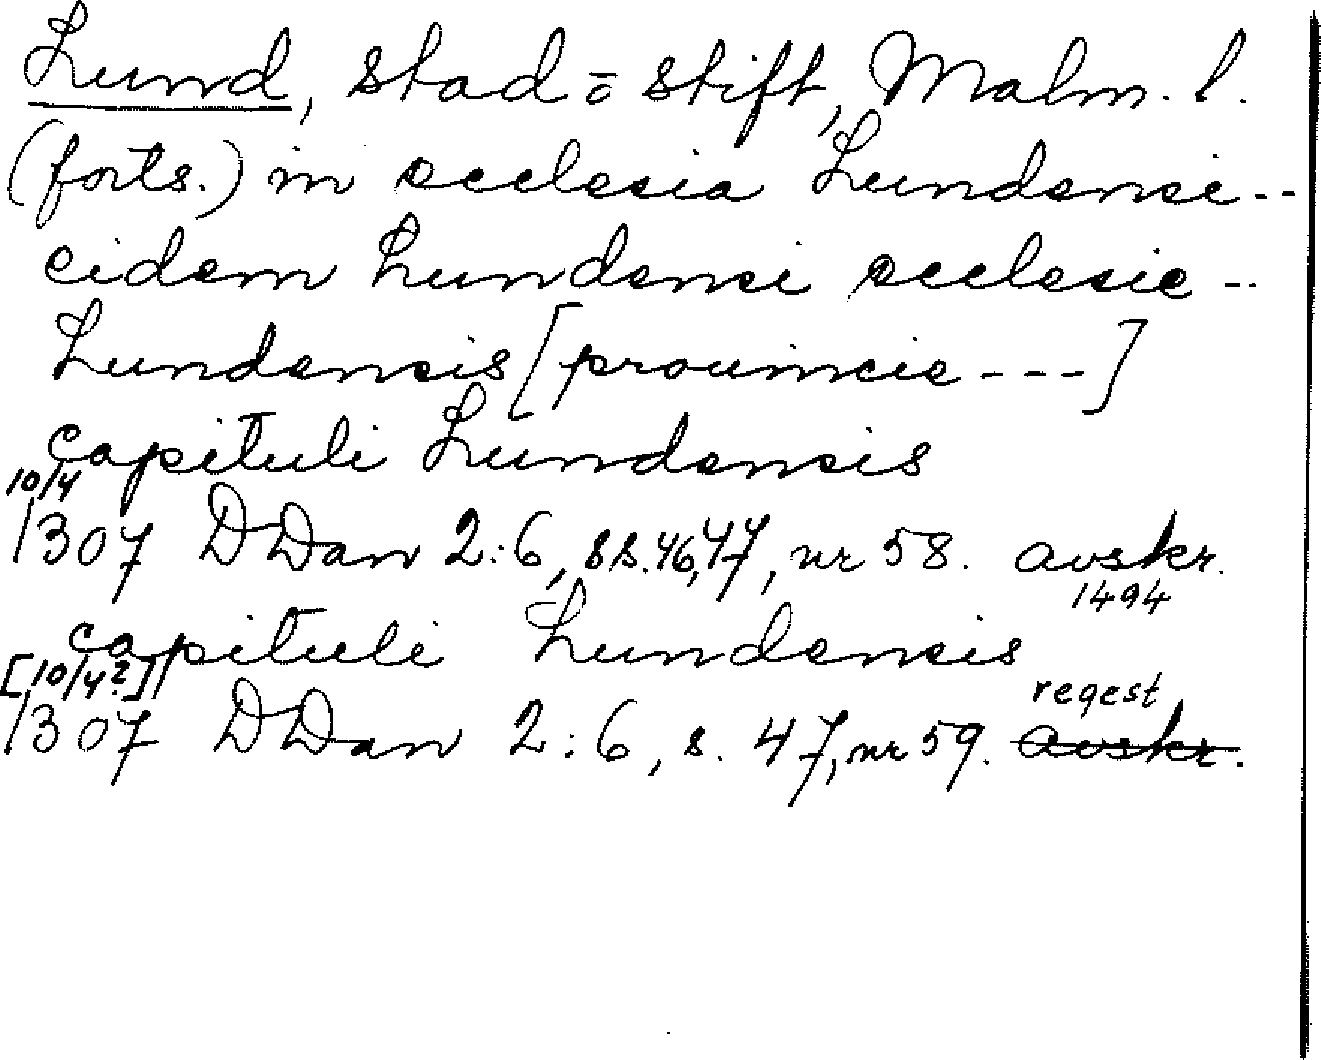 Lund, stad o stift, Malm. l.
(forts.) in ecclesia Lundensi --
eidem Lundensi ecclesie --
Lundensis [prouincie ---]
capituli Lundensis
10/4
1307 DDan 2:6, ss. 46,47, nr 58. avskr.
1494
capituli Lundensis
[10/4?]
regest
1307 DDan 2:6, s. 47, nr 59. avskr.